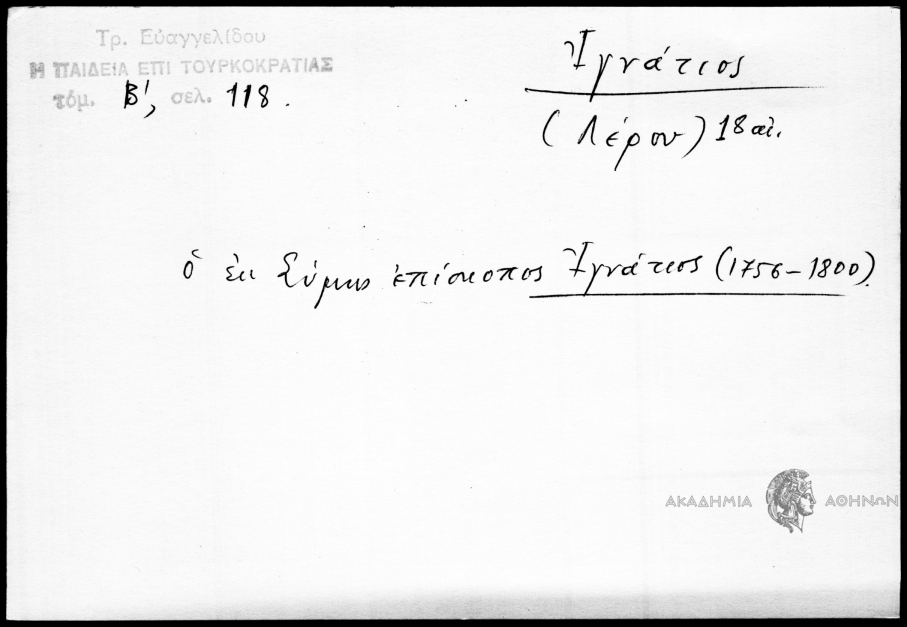 Τρ. Εὐαγγελίδου
Η ΠΑΙΔΕΙΑ ΕΠΙ ΤΟΥΡΚΟΚΡΑΤΙΑΣ
τόμ. Β', σελ. 118.
Ἰγνάτιος
(Λέρου) 18 αἰ.
ὁ ἐκ Σύμης ἐπίσκοπος Ἰγνάτιος (1756-1800).
ΑΚΑΔΗΜΙΑ ΑΘΗΝΩΝ